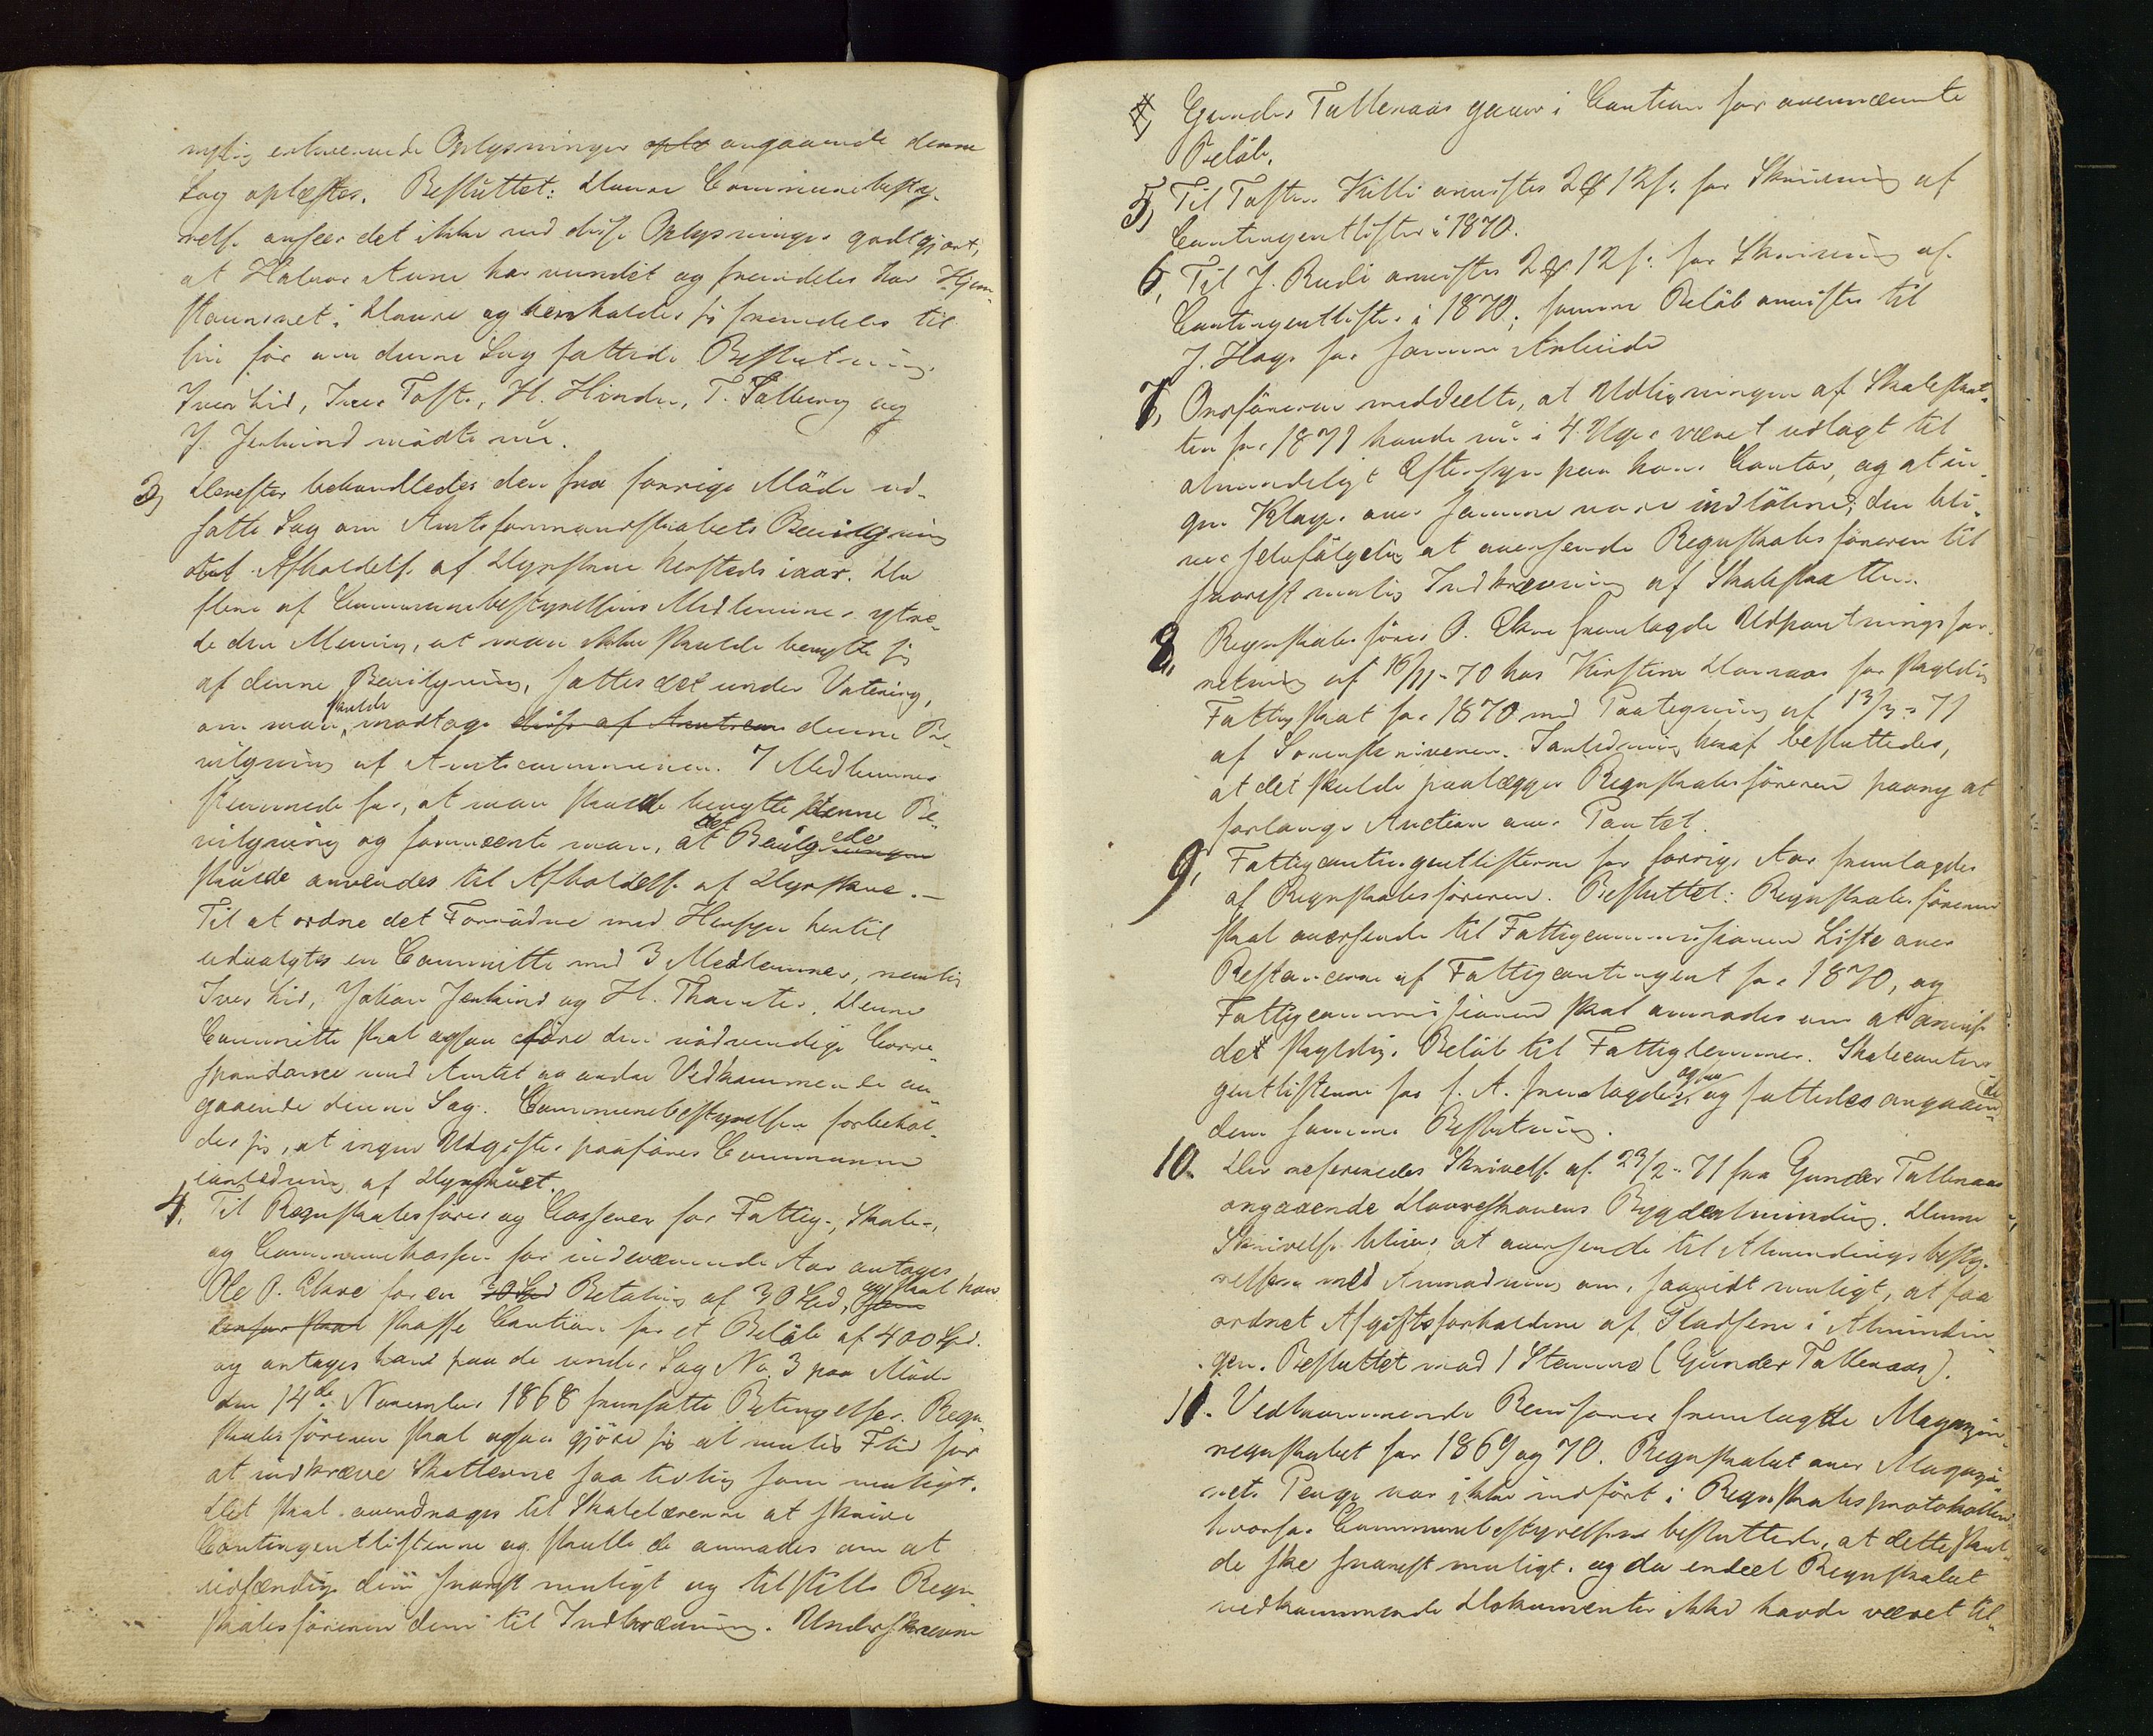 nylig erhvervede Oplysninger opl angaaende denne
Sag oplæstes. Besluttet: Dovre Communebesty-
relse ansees det ikke ved disse Oplysninger godtgjort,
at Halvor Aune har vundet og fremdeles har Hjem-
stavnsret i Dovre og henholder sig fremdeles til
sin før om denne Sag fattede Beslutning.
Iver Lid, Iver Tofte, H. Hinden, T. Talleraas og
J. Jerkind mødte nu.
3) Derefter behandledes den fra forrige Møde ud-
satte Sag om Amtsformandskabets Bevilgning
til Afholdelse af Dyrskue hersteds iaar. Da
flere af Communebestyrelsens Medlemmer ytre-
de den Mening, at man ikke skulde benytte sig
af denne Bevilgning, sattes det under Votering,
om man skulde modtage disse af Amtscom denne Be-
vilgning af Amtscommunen. 7 Medlemmer
stemmede for, at man skulde benytte denne Be-
vilgning og formeente man, at det Bevilgede
skulde anvendes til Afholdelse af Dyrskue. –
Til at ordne det Fornødne med Hensyn hertil
udvalgtes en Committe med 3 Medlemmer, nemlig
Iver Lid, Johan Jerkind og H. Thomter. Denne
Committe skal ogsaa føre den nødvendige Corre-
spondance med Amtet og andre Vedkommende an-
gaaende denne Sag. Communebestyrelsen forbehol-
der sig, at ingen Udgifter paaføres Communen
ianledning af Dyrskuet.
4, Til Regnskabsfører og Casserer for Fattig-, Skole-,
og Communekassen for indeværende Aar antages
Ole P. Ekre for en 30 Spd Betaling af 30 Spd, og skal han
skaffe Caution for et Beløb af 400 Spd.
og antages han paa de under Sag No 3 paa Møde
den 14de November 1868 fremsatte Betingelser. Regn-
skabsføreren skal ogsaa gjøre sig al mulig Flid for
at indkræve Skatterne saa tidlig som muligt.
Det skal overdrages til Skolelærerne at skrive
Contingentlisterne og skulle de anmodes om at
udfærdige dem snarest muligt og tilstille Regn-
skabsføreren dem til Indkrævning. Underskrevne
4) Gunder Talleraas gaaer i Caution for ovennævnte
Beløb.
5) Til Tosten Killi anvistes 2 Spd 12 s: for Skrivning af
Contingentlister i 1870.
6, Til J. Rudi anvistes 2 Spd 12 s: for Skrivning af
Contingentlister i 1870; samme Beløb anvistes til
J. Hage for samme Arbeide
7, Ordføreren meddeelte, at Udligningen af Skoleskat-
ten for 1871 havde nu i 4 Uger været udlagt til
almindeligt Eftersyn paa hans Contor, og at in-
gen Klager over samme vare indløbne; den bli-
ver selvfølgelig at oversende Regnskabsføreren til
snarest mulig Indkrævning af Skoleskatten.
8, Regnskabsfører O. Ekre fremlagde Udpantningsfor-
retning af 16/11-70 hos Kirstine Dovraas for skyldig
Fattigskat for 1870 med Paategning af 13/3-71
af Sorenskriveren. Ianledning heraf besluttedes,
at det skulde paalægges Regnskabsføreren paany at
forlange Auction over Pantet.
9, Fattigcontingentlisterne for forrige Aar fremlagdes
af Regnskabsføreren. Besluttet: Regnskabsføreren
skal oversende til Fattigcommissionen Liste over
Restancerne af Fattigcontingent for 1870, og
Fattigcommissionen skal anmodes om at anvise
det skyldige Beløb til Fattiglemmer. Skolecontin-
gentlisterne for f. A. fremlagdes ogsaa, og fattedes angaaen-
dem samme Beslutning.
10. Der refereredes Skrivelse af 23/2-71 fra Gunder Talleraas
angaaende Dovreskovens Bygdealminding. Denne
Skrivelse bliver at oversende til Almindingsbesty-
relsen med Anmodning om, saavidt muligt, at faa
ordnet Afgiftsforholdene af Pladsene i Almindin-
gen. Besluttet mod 1 Stemme (Gunder Talleraas).
11. Vedkommende Revisorer fremlagde Magazin-
regnskabet for 1869 og 70. Regnskabet over Magazi-
nets Penge var ikke indført i Regnskabsprotokollen
hvorfor Communebestyrelsen besluttede, at dette skul-
de ske snarest muligt. og da endeel Regnskabet
vedkommende Dokumenter ikke havde været til-